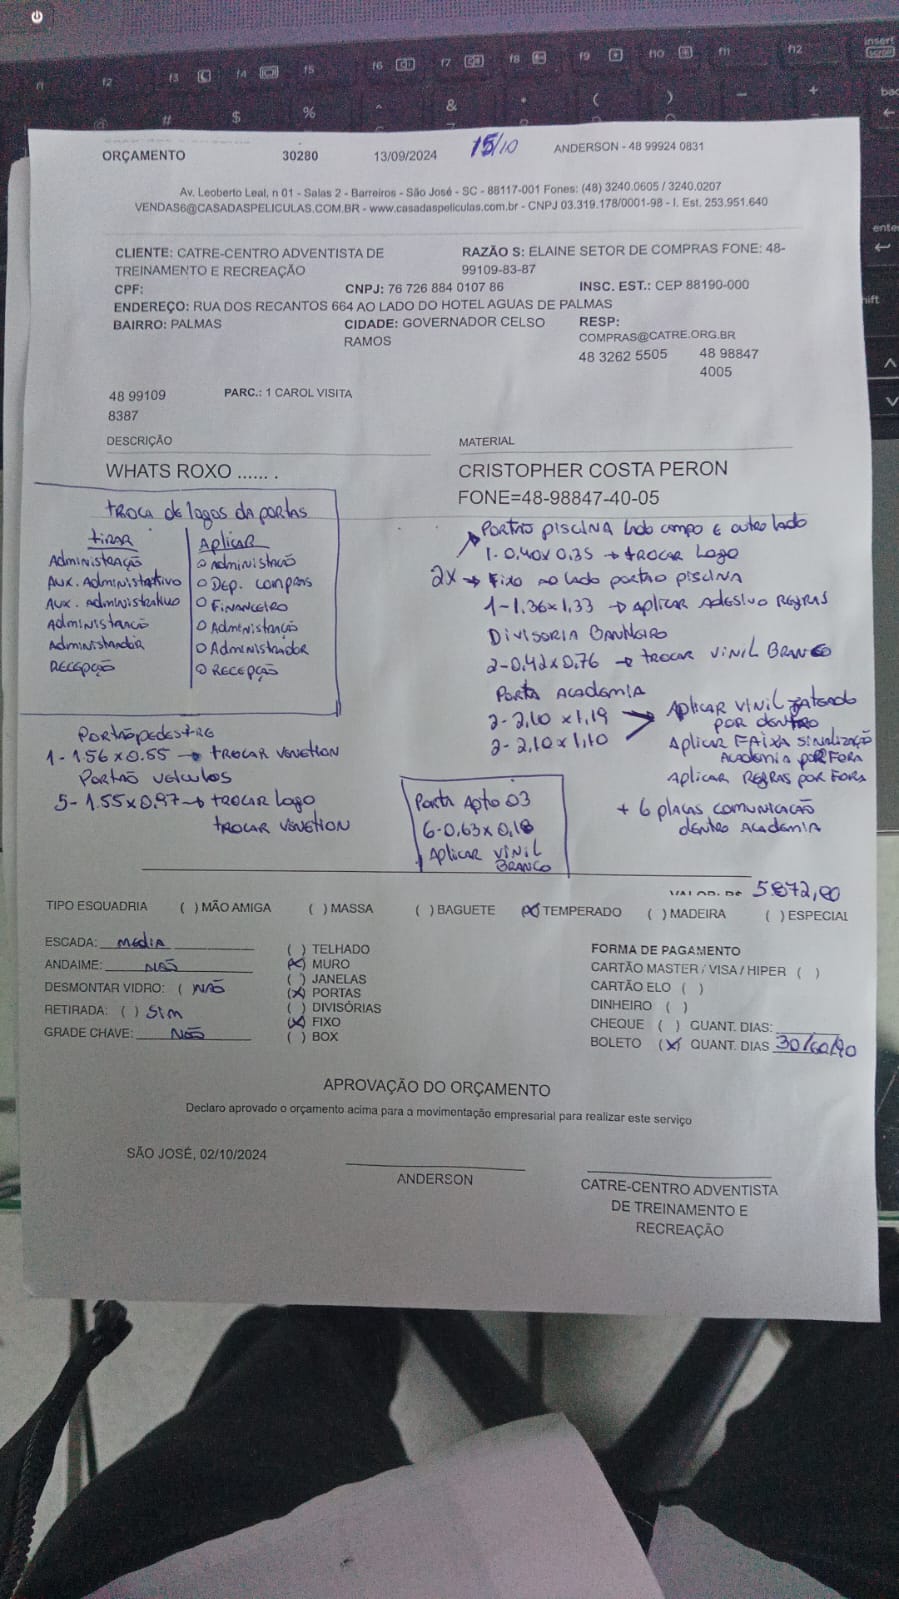 ORÇAMENTO 30280 13/09/2024 15/10 ANDERSON - 48 99924 0831
Av. Leoberto Leal, n 01 - Salas 2 - Barreiros - São José - SC - 88117-001 Fones: (48) 3240.0605 / 3240.0207
VENDAS6@CASADASPELICULAS.COM.BR - www.casadaspeliculas.com.br - CNPJ 03.319.178/0001-98 - I. Est. 253.951.640
CLIENTE: CATRE-CENTRO ADVENTISTA DE TREINAMENTO E RECREAÇÃO
RAZÃO S: ELAINE SETOR DE COMPRAS FONE: 48-99109-83-87
CPF: CNPJ: 76 726 884 0107 86 INSC. EST.: CEP 88190-000
ENDEREÇO: RUA DOS RECANTOS 664 AO LADO DO HOTEL AGUAS DE PALMAS
BAIRRO: PALMAS CIDADE: GOVERNADOR CELSO RAMOS
RESP: COMPRAS@CATRE.ORG.BR
48 3262 5505 48 98847 4005
48 99109 8387
PARC.: 1 CAROL VISITA
DESCRIÇÃO MATERIAL
WHATS ROXO ...... . CRISTOPHER COSTA PERON
FONE=48-98847-40-05
TROCA de logos da portas
tirar Aplicar
Administração o Administração
Aux. Administrativo o Dep. compras
Aux. Administrativo o Financeiro
Administração o Administração
Administrador o Administrador
Recepção o Recepção
Portão pedestre
1- 1.56 x 0.55 → trocar venetion
Portão veículos
5- 1.55 x 0.97 → trocar logo
trocar venetion
Portão piscina lado campo e outro lado
1- 0.40 x 0.35 → trocar logo
2x → Fixo ao lado portão piscina
1- 1.36 x 1.33 → Aplicar adesivo regras
Divisoria Banheiro
2- 0.42 x 0.76 → trocar vinil branco
Porta Academia
2- 2,10 x 1,19 → Aplicar vinil jateado por dentro
2- 2,10 x 1,10 Aplicar faixa sinalização academia por fora
Aplicar regras por fora
+ 6 placas comunicação
dentro academia
Porta Apto 03
6- 0,63 x 0,18
Aplicar vinil
branco
VALOR: R$ 5872,00
TIPO ESQUADRIA ( ) MÃO AMIGA ( ) MASSA ( ) BAGUETE (X) TEMPERADO ( ) MADEIRA ( ) ESPECIAL
ESCADA: média
ANDAIME: NÃO
DESMONTAR VIDRO: ( NÃO
RETIRADA: ( ) Sim
GRADE CHAVE: NÃO
( ) TELHADO
(X) MURO
( ) JANELAS
(X) PORTAS
( ) DIVISÓRIAS
(X) FIXO
( ) BOX
FORMA DE PAGAMENTO
CARTÃO MASTER / VISA / HIPER ( )
CARTÃO ELO ( )
DINHEIRO ( )
CHEQUE ( ) QUANT. DIAS:
BOLETO (X) QUANT. DIAS 30/60/90
APROVAÇÃO DO ORÇAMENTO
Declaro aprovado o orçamento acima para a movimentação empresarial para realizar este serviço
SÃO JOSÉ, 02/10/2024
ANDERSON
CATRE-CENTRO ADVENTISTA
DE TREINAMENTO E
RECREAÇÃO